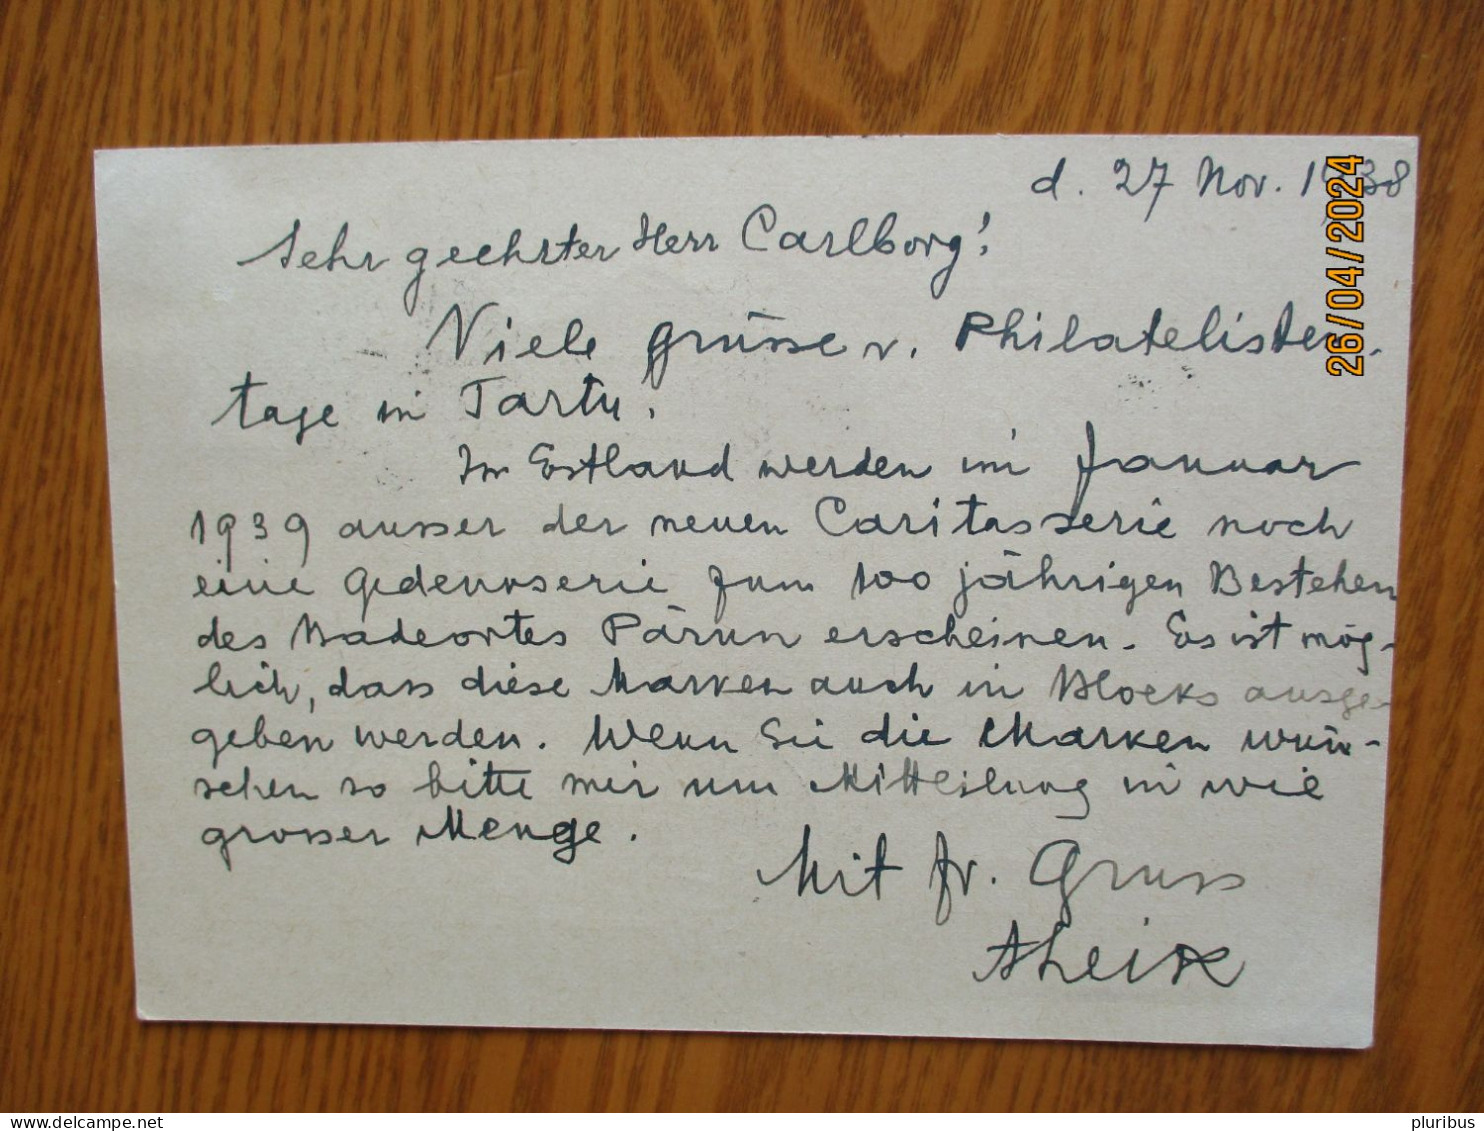 d. 27 Nov. 1938
Sehr geehrter Herr Carlborg!
Viele Grüsse v. Philatelisten-
tage in Tartu.
In Estland werden im Januar
1939 ausser der neuen Caritasserie noch
eine Gedenkserie zum 100 jährigen Bestehen
des Badeortes Pärnu erscheinen. Es ist mög-
lich, dass diese Marken auch in Blocks ausge-
geben werden. Wenn Sie die Marken wün-
schen so bitte mir um Mitteilung in wie
grosser Menge.
Mit fr. Gruss
26/04/2024
delcampe.net
pluribus